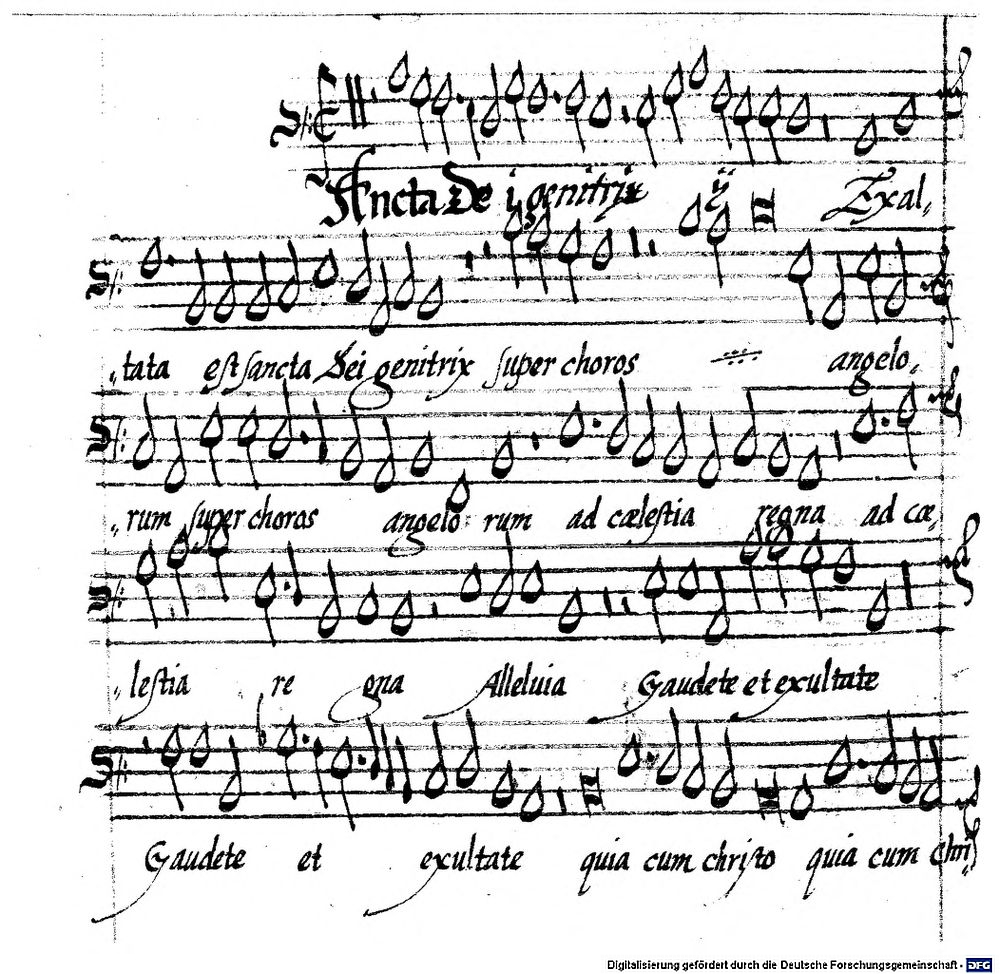 Sancta Dei genitrix ij Exal„
„tata est sancta Dei genitrix super choros angelo„
„rum super choros angelo: rum ad cælestia regna ad cæ„
„lestia re gna Alleluia Gaudete et exultate
Gaudete et exultate quia cum christo quia cum Chri„
Digitalisierung gefördert durch die Deutsche Forschungsgemeinschaft - DFG